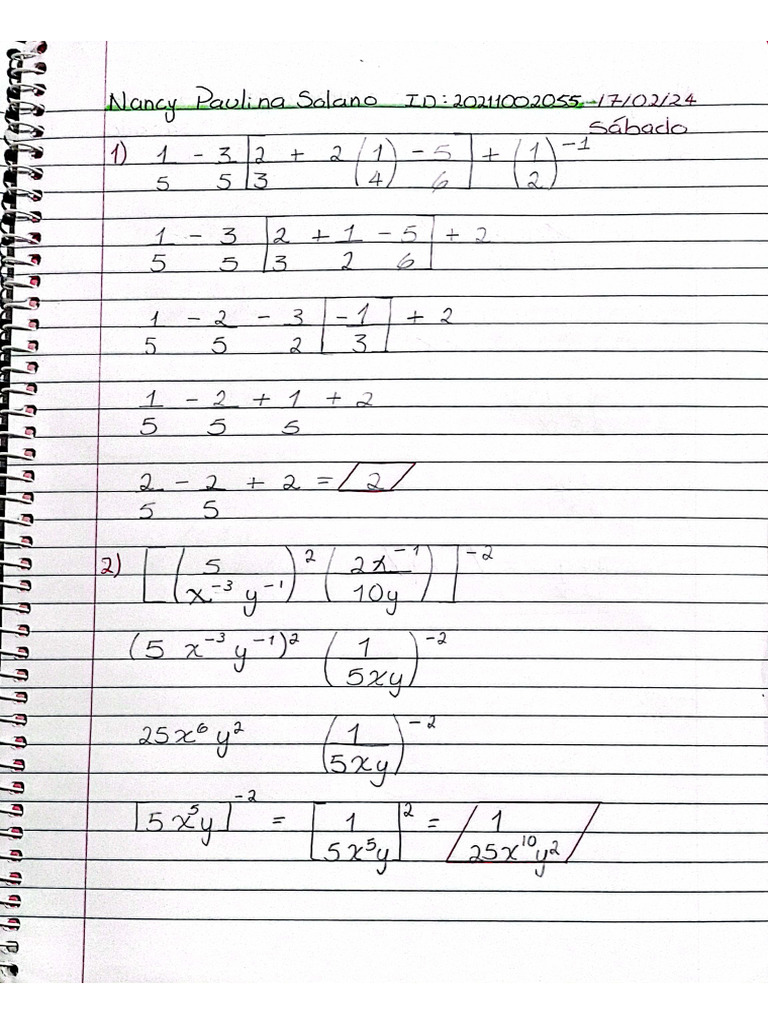 Nancy Paulina Solano ID: 20211002055 - 17/02/24
Sábado
1) 1/5 - 3/5 [2/3 + 2 (1/4) - 5/6] + (1/2)^-1
1/5 - 3/5 [2/3 + 1/2 - 5/6] + 2
1/5 - 2/5 - 3/2 [-1/3] + 2
1/5 - 2/5 + 1/5 + 2
2/5 - 2/5 + 2 = 2
2) [(5/x^-3 y^-1)^2 (2x^-1/10y)]^-2
(5 x^-3 y^-1)^2 (1/5xy)^-2
25x^6 y^2 (1/5xy)^-2
[5x^5y]^-2 = [1/5x^5y]^2 = 1/25x^10y^2